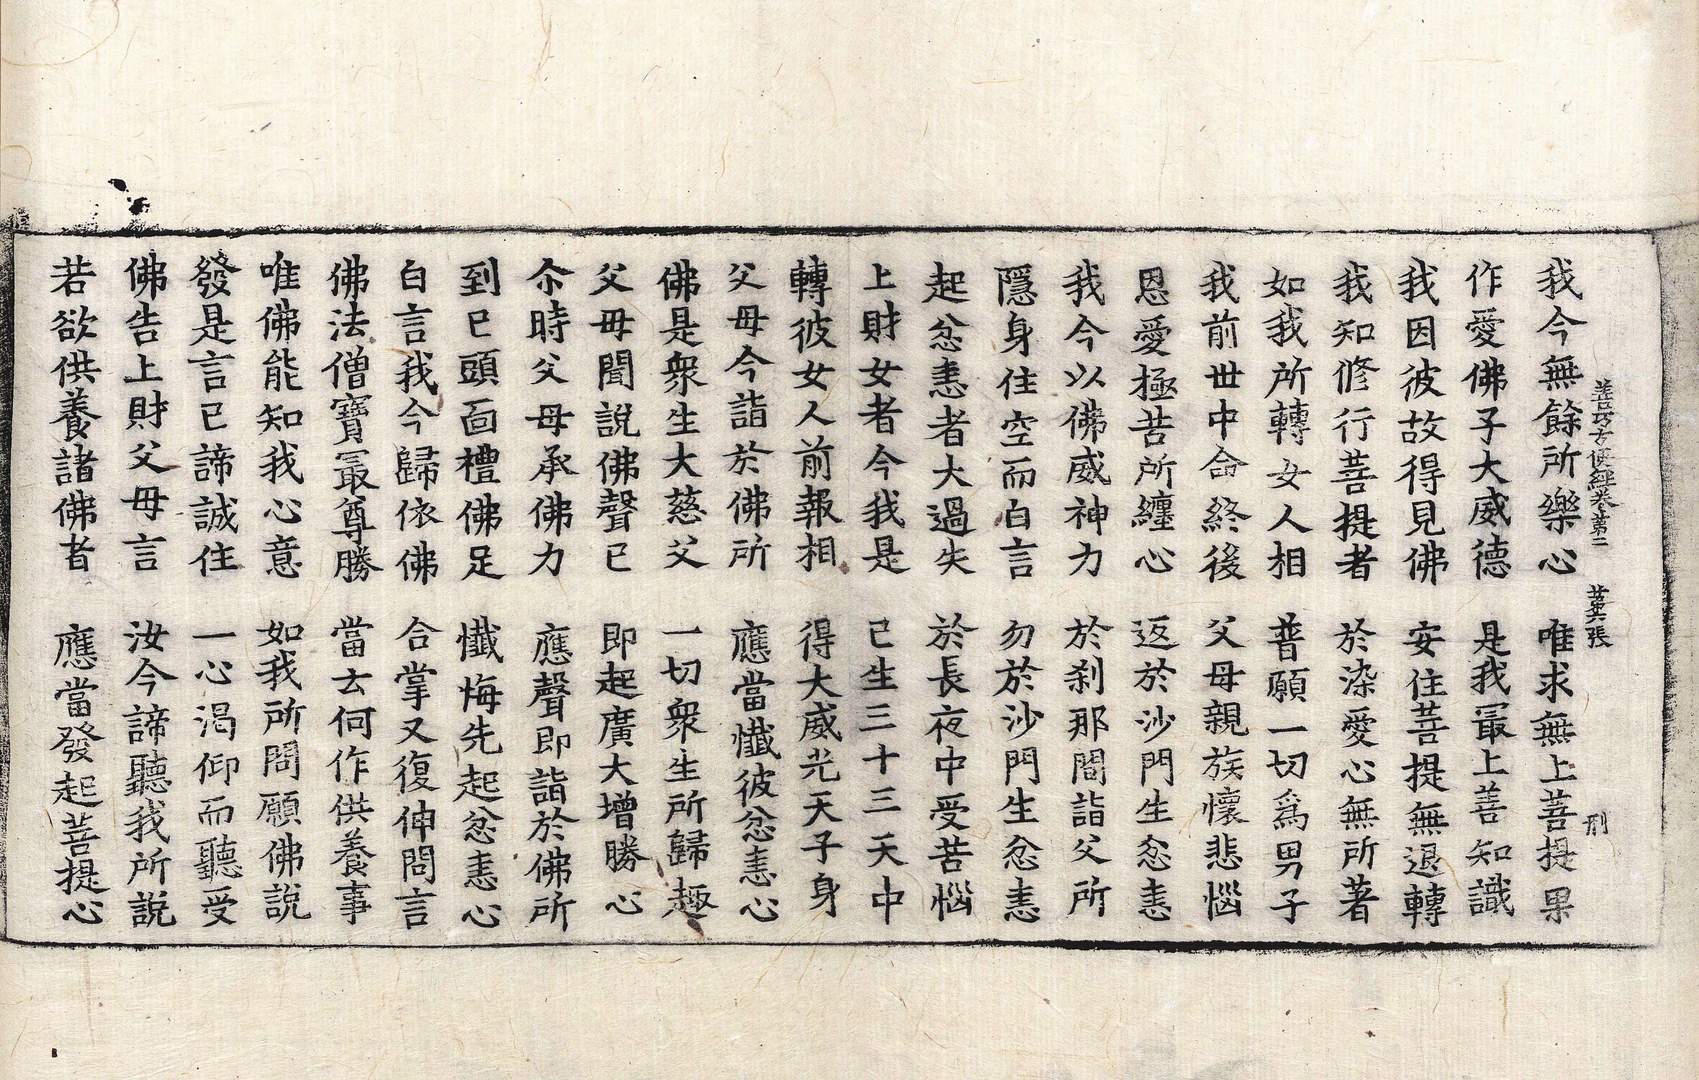 善巧方便經卷第二 第六張 刑
我今無餘所樂心 唯求無上菩提果
作愛佛子大威德 是我冣上善知識
我因彼故得見佛 安住菩提無退轉
我知修行菩提者 於染愛心無所著
如我所轉女人相 普願一切爲男子
我前世中命終後 父母親族懷悲惱
恩愛極苦所纏心 返於沙門生忿恚
我今以佛威神力 於刹那間詣父所
隱身住空而白言 勿於沙門生忿恚
起忿恚者大過失 於長夜中受苦惱
上財女者今我是 已生三十三天中
轉彼女人前報相 得大威光天子身
父母今詣於佛所 應當懺彼忿恚心
佛是衆生大慈父 一切衆生所歸趣
父母聞說佛聲已 即起廣大增勝心
尒時父母承佛力 應聲即詣於佛所
到已頭面禮佛足 懺悔先起忿恚心
白言我今歸依佛 合掌又復伸問言
佛法僧寶冣尊勝 當云何作供養事
唯佛能知我心意 如我所問願佛說
發是言已諦誠住 一心渴仰而聽受
佛告上財父母言 汝今諦聽我所說
若欲供養諸佛者 應當發起菩提心